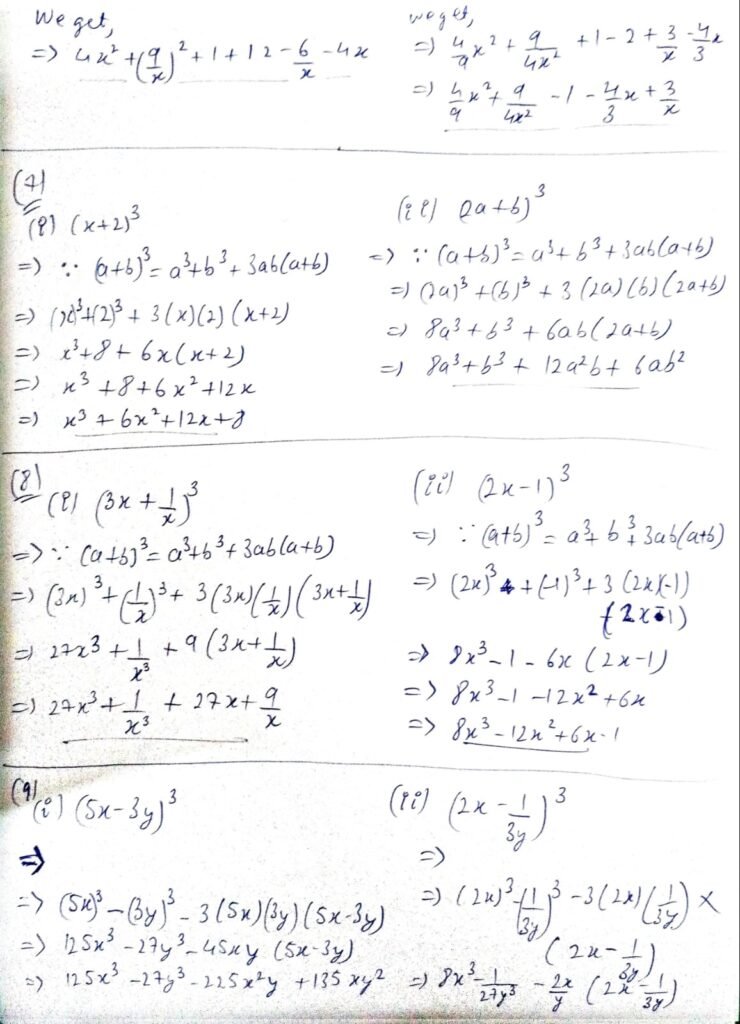 We get,
=> 4x² + (9/x)² + 1 + 12 - 6/x - 4x
we get,
=> 4/9 x² + 9/4x² + 1 - 2 + 3/x - 4/3 x
=> 4/9 x² + 9/4x² - 1 - 4/3 x + 3/x
(7)
(i) (x+2)³
=> ∵ (a+b)³ = a³+b³+3ab(a+b)
=> (x)³+(2)³ + 3(x)(2)(x+2)
=> x³+8+6x(x+2)
=> x³+8+6x²+12x
=> x³+6x²+12x+8
(ii) (2a+b)³
=> ∵ (a+b)³ = a³+b³+3ab(a+b)
=> (2a)³+(b)³+3(2a)(b)(2a+b)
=> 8a³+b³+6ab(2a+b)
=> 8a³+b³+12a²b+6ab²
(8)
(i) (3x + 1/x)³
=> ∵ (a+b)³ = a³+b³+3ab(a+b)
=> (3x)³ + (1/x)³ + 3(3x)(1/x)(3x+1/x)
=> 27x³ + 1/x³ + 9(3x+1/x)
=> 27x³ + 1/x³ + 27x + 9/x
(ii) (2x-1)³
=> ∵ (a+b)³ = a³+b³+3ab(a+b)
=> (2x)³ + (-1)³ + 3(2x)(-1)
(2x-1)
=> 8x³-1-6x(2x-1)
=> 8x³-1-12x²+6x
=> 8x³-12x²+6x-1
(9)
(i) (5x-3y)³
=>
=> (5x)³-(3y)³-3(5x)(3y)(5x-3y)
=> 125x³-27y³-45xy(5x-3y)
=> 125x³-27y³-225x²y+135xy²
(ii) (2x - 1/3y)³
=>
=> (2x)³-(1/3y)³-3(2x)(1/3y)×
(2x-1/3y)
=> 8x³-1/27y³-2x/y(2x-1/3y)